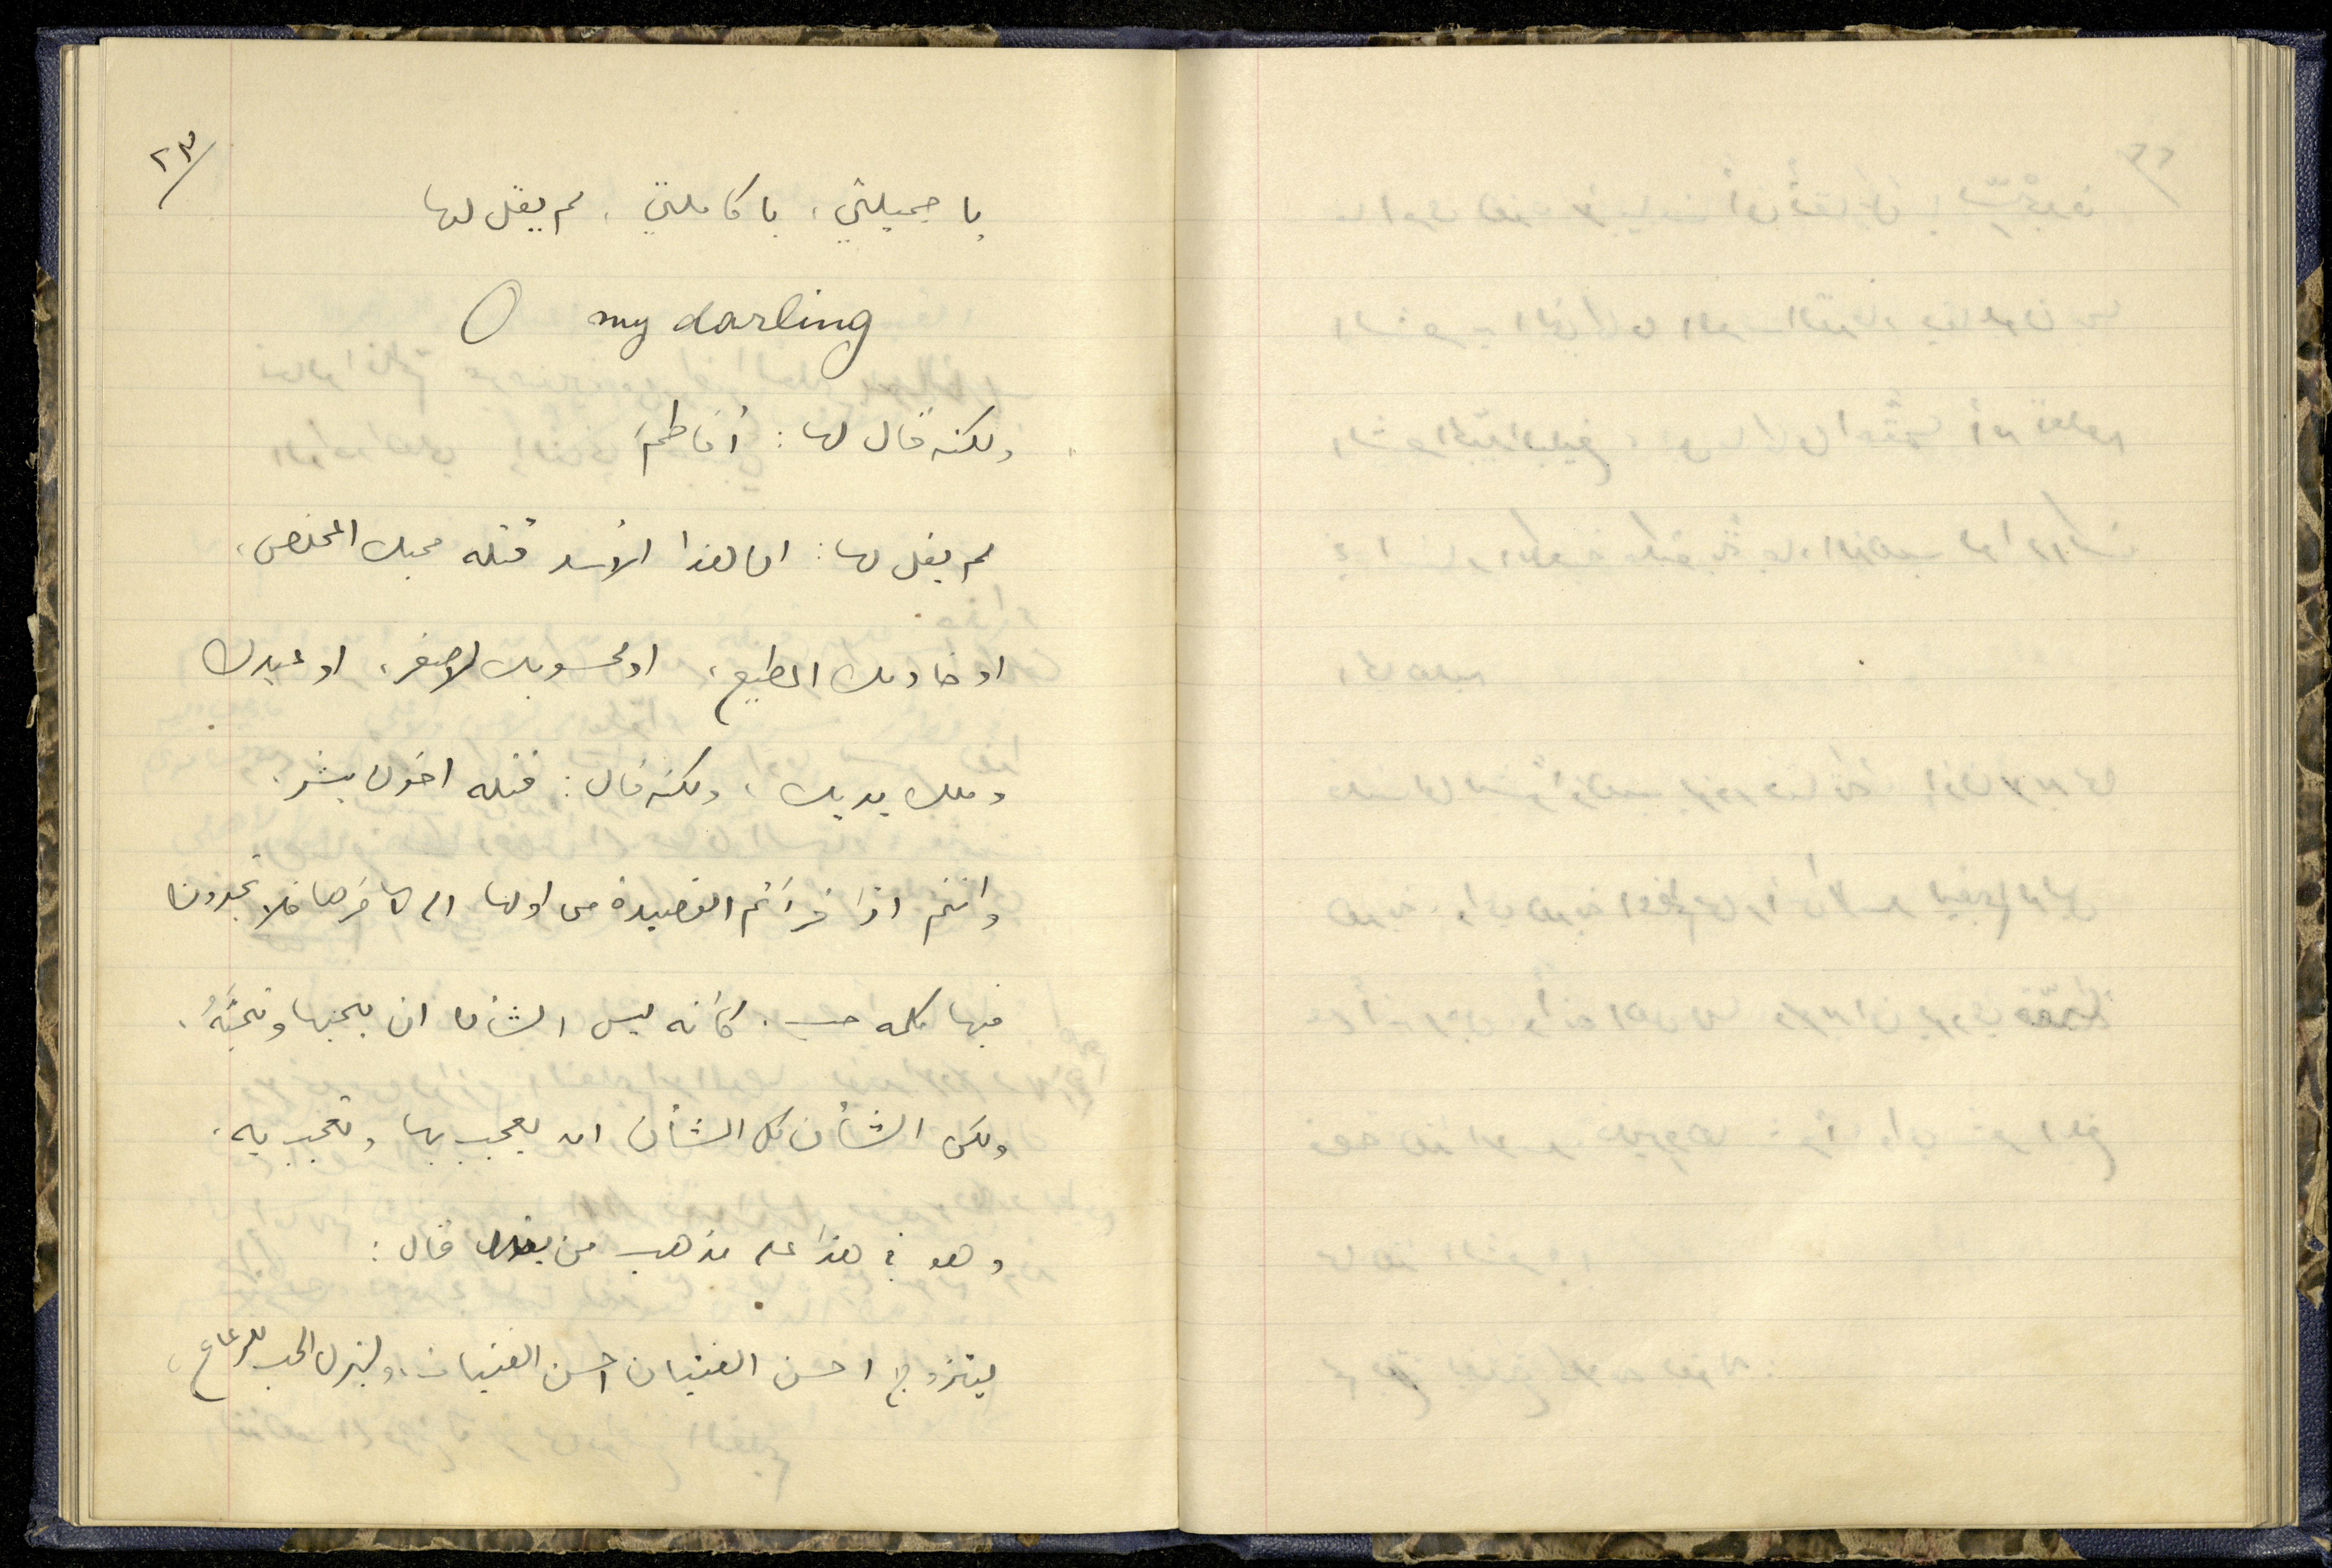 ٢٣/
يا جميلتي، يا كاملتي، لم يقل لها
O my darling
ولكنه قال لها: أفاطمَ
لم يقل لها: ان هذا الأسد قتله محبك المخلص،
او خادمك المطيع، او محسوبك الاصغر، او عبدك
وملك يديك، ولكنه قال: قتله اخوك بشر.
وانتم اذا قرأتم القصيدة من اولها الى آخرها فلا تجدون
فيها كلمة حب. كأنه ليس الشأن ان يحبها وتحبَّهُ،
ولكن الشأن كل الشأن ان يعجب بها وتعجب به.
وهو في هذا على مذهب من قال:
ليتزوج احسن الفتيان احسن الفتيات، وليترك الحب للرعاع،